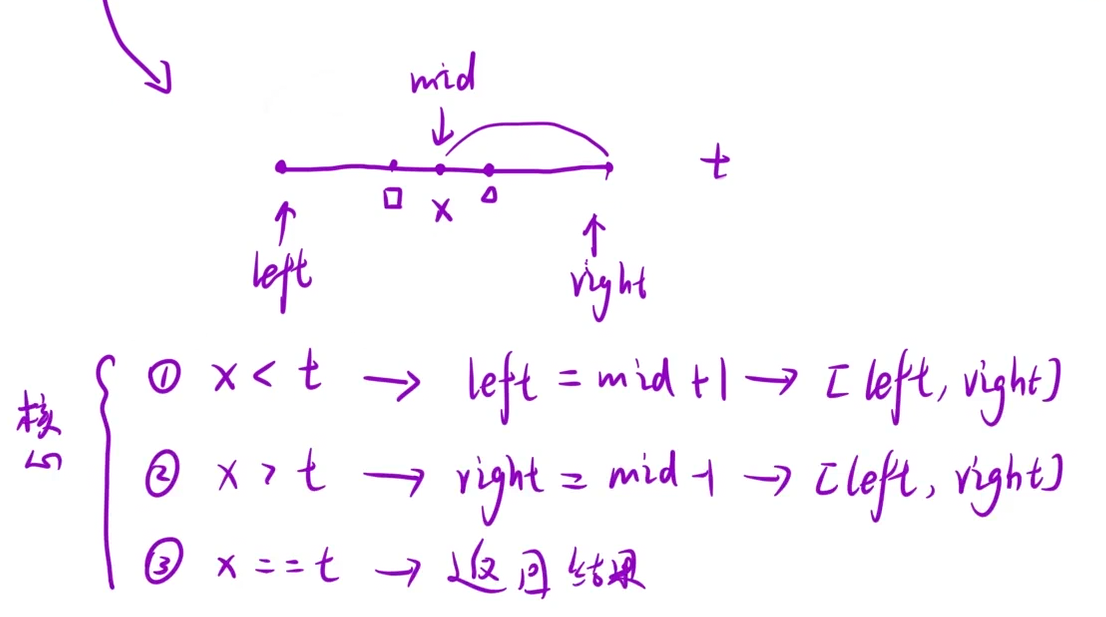 mid
t
□ x △
left
right
核心
① x < t → left = mid +1 → [left, right]
② x > t → right = mid -1 → [left, right]
③ x == t → 返回结果